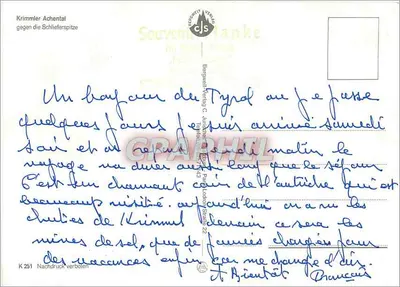 Krimmler Achental
gegen die Schlieferspitze
Un bonjour du Tyrol ou je passe
quelques jours je suis arrivé samedi
soir et on repart jeudi matin le
voyage ne dure aussi long que le séjour
C'est un charmant coin de l'autriche qui est
beaucoup visité. aujourd'hui on a vu les
chutes de Krimml demain ce sera les
mines de sel, que de journées chargées pour
des vacances enfin ça me change d'air.
A Bientôt François
K 251 Nachdruck verboten
CPAPHIL
cjs